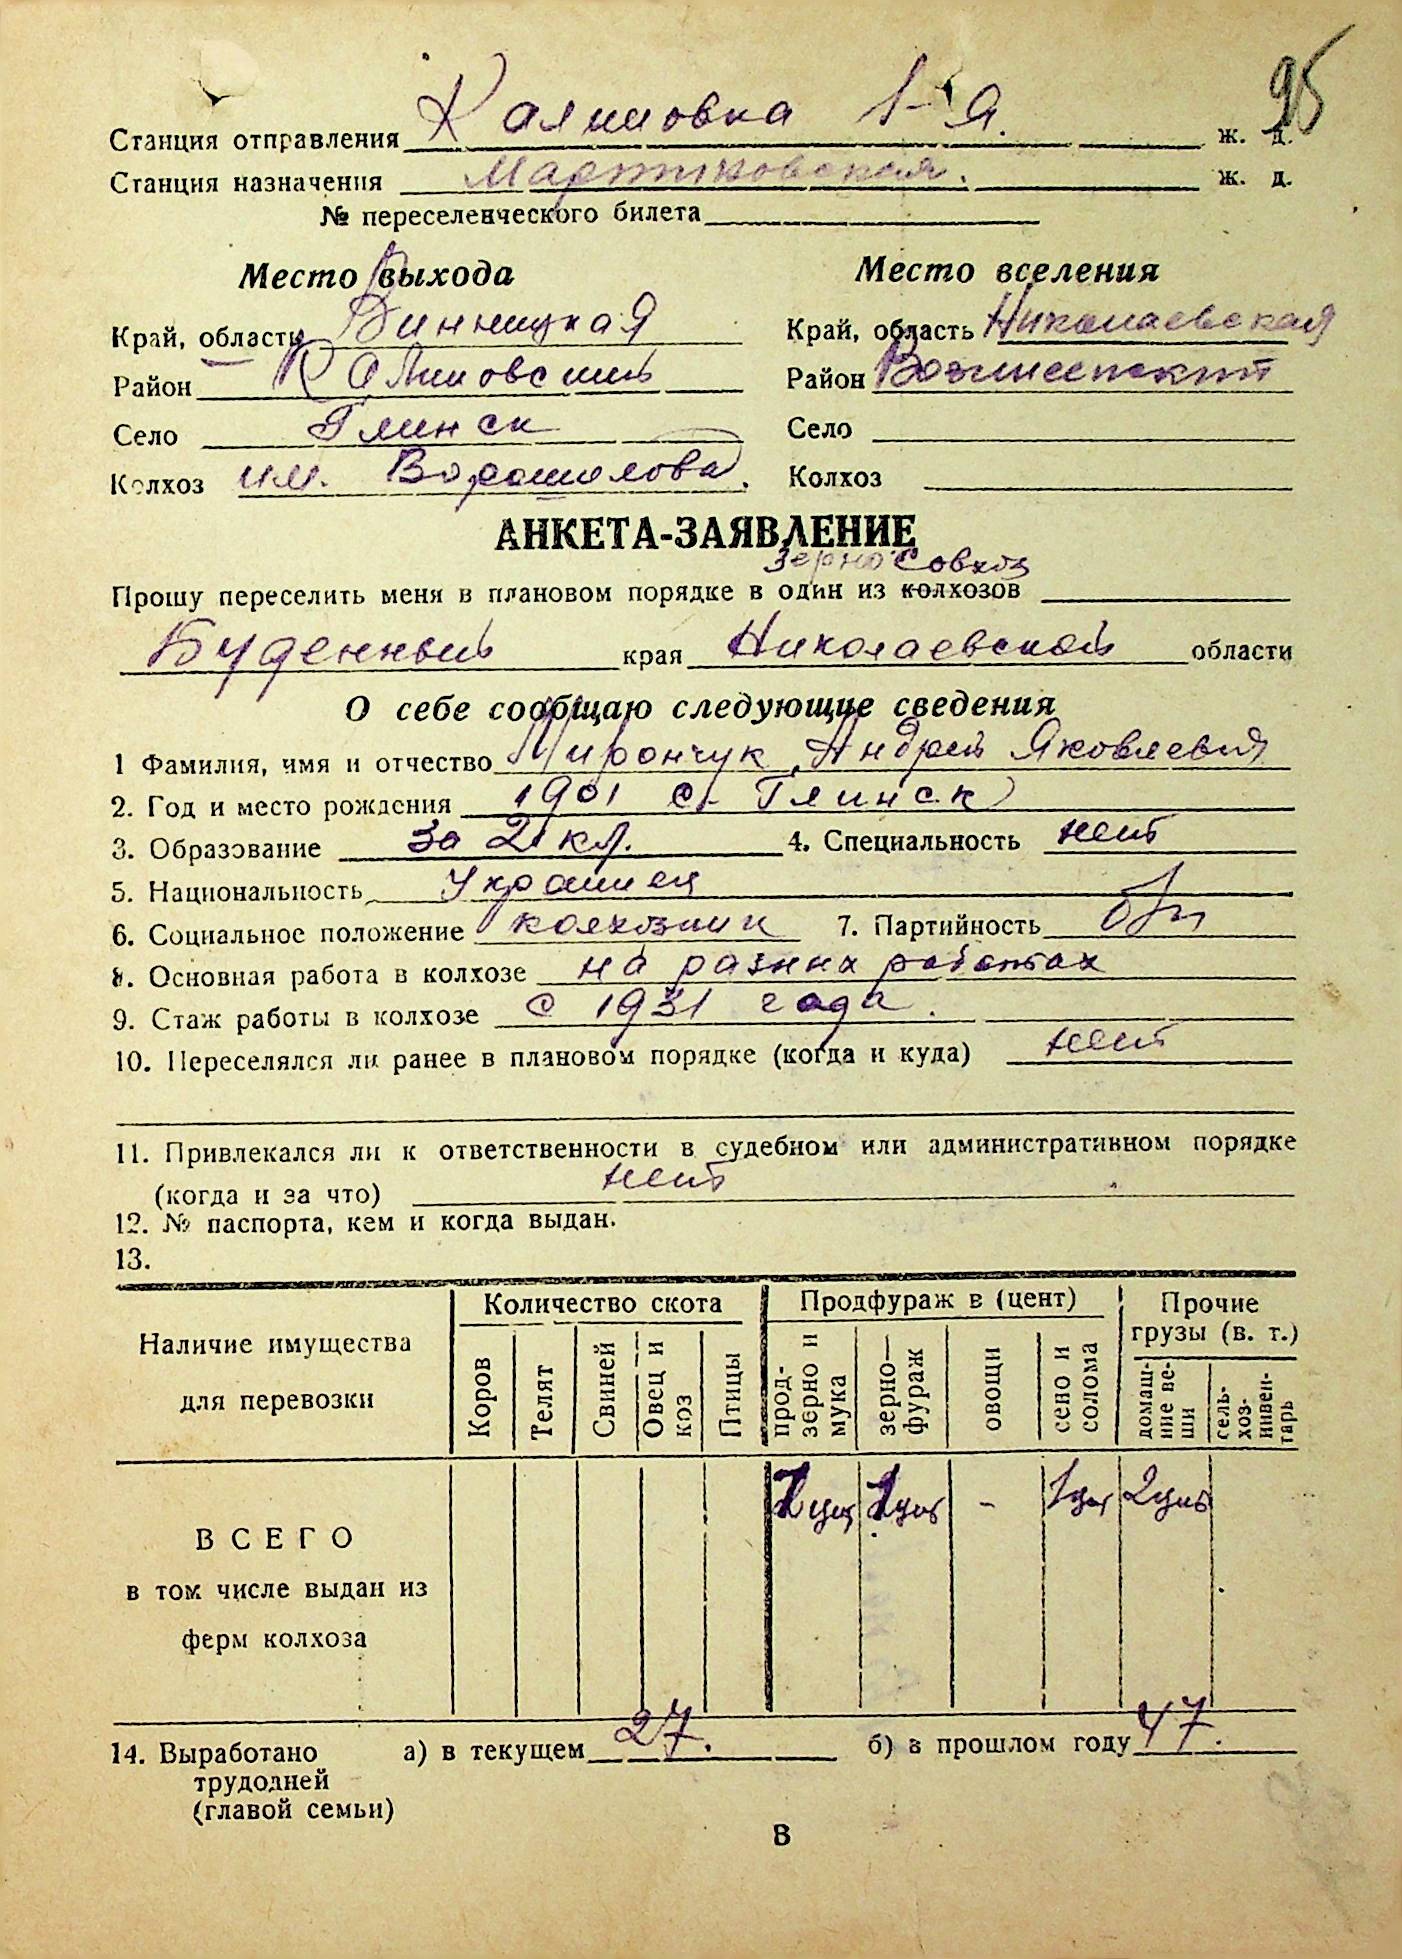 95
Станция отправления Калиновка 1-я. ж. д.
Станция назначения Мартыновская. ж. д.
№ переселенческого билета
Место выхода
Место вселения
Край, область Винницкая
Край, область Николаевская
Район Калиновский
Район Вознесенский
Село Глинск
Село
Колхоз им. Ворошилова.
Колхоз
АНКЕТА-ЗАЯВЛЕНИЕ
зерносовхоз
Прошу переселить меня в плановом порядке в один из колхозов
Буденный края Николаевской области
О себе сообщаю следующие сведения
1 Фамилия, имя и отчество Мирончук Андрей Яковлевич
2. Год и место рождения 1901 с. Глинск
3. Образование за 2 кл. 4. Специальность нет
5. Национальность Украинец
6. Социальное положение колхозник 7. Партийность б/п
8. Основная работа в колхозе на разных работах
9. Стаж работы в колхозе с 1931 года.
10. Переселялся ли ранее в плановом порядке (когда и куда) нет
11. Привлекался ли к ответственности в судебном или административном порядке
(когда и за что) нет
12. № паспорта, кем и когда выдан.
13.
Наличие имущества
для перевозки
Количество скота
Продфураж в (цент)
Прочие
грузы (в. т.)
Коров
Телят
Свиней
Овец и
коз
Птицы
прод-
зерно и
мука
зерно—
фураж
овощи
сено и
солома
домаш-
ние ве-
щи
сель-
хоз-
инвен-
тарь
ВСЕГО
в том числе выдан из
ферм колхоза
- 
14. Выработано а) в текущем 27. б) в прошлом году 47.
трудодней
(главой семьи)
В